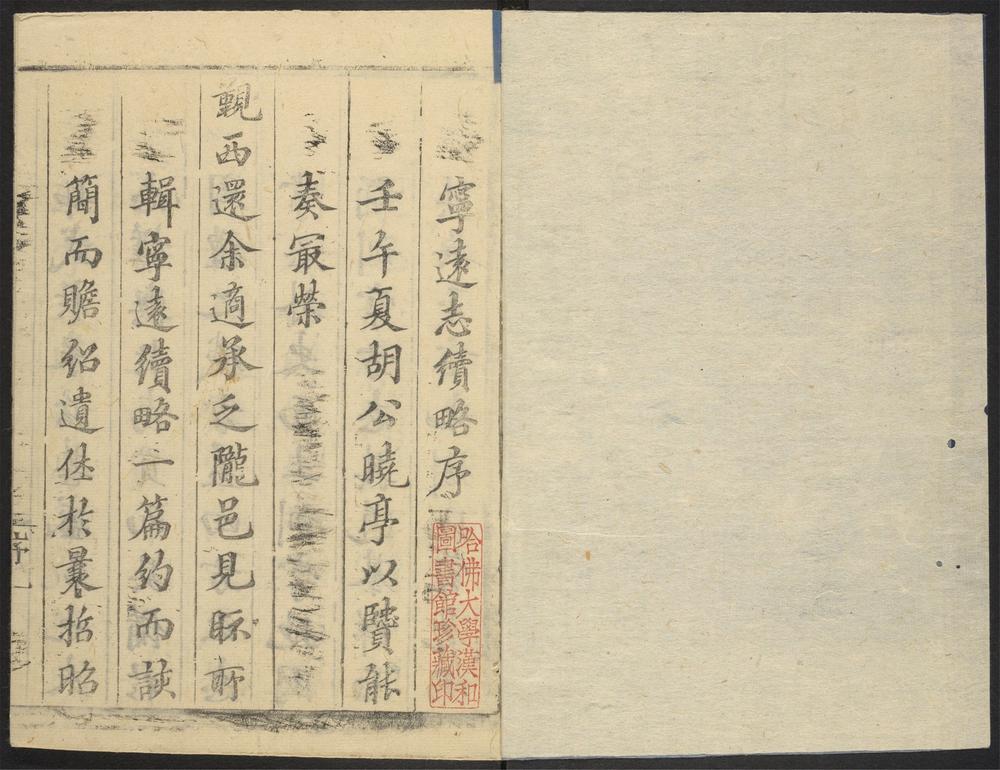 寧遠志續略序
壬午夏胡公曉亭以贒能
奏冣榮
覲西還余適承乏隴邑見眎所
輯寧遠續略一篇約而該
簡而贍紹遺佳於曩哲昭
哈佛大學漢和
圖書館珍藏印
序